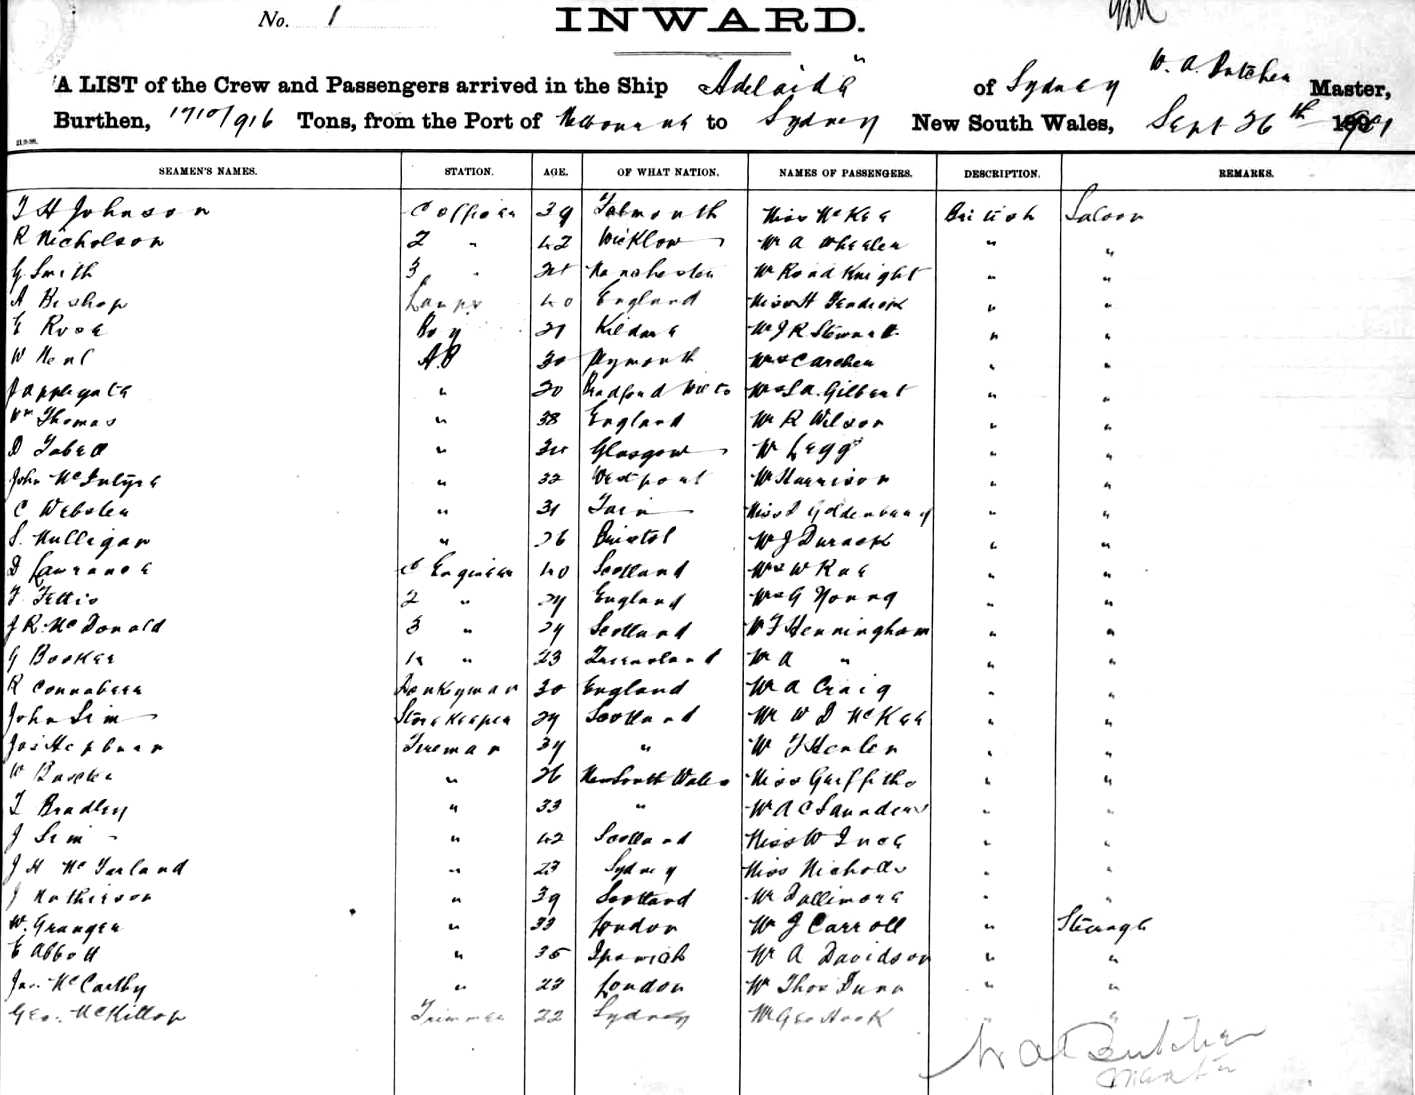 No. 1
INWARD.
A LIST of the Crew and Passengers arrived in the Ship "Adelaide" of Sydney W. A. Butcher Master,
Burthen, 1710/916 Tons, from the Port of Melbourne to Sydney New South Wales, Sept 26th 1901
SEAMEN'S NAMES. STATION. AGE. OF WHAT NATION. NAMES OF PASSENGERS. DESCRIPTION. REMARKS.
T H Johnson C Officer 39 Falmouth Miss McKee British Saloon
R Nicholson 2 " 42 Wicklow Mr A Wheeler " "
G Smith 3 " Manchester Mr Road Knight " "
A Bishop Lamps 40 England Miss H Fendick " "
E Rose Boy 21 Kildare Mr J R Stewart " "
W Neal A.B 30 Plymouth Mrs Carcher " "
J Applegate " 20 Bradford Wilts Mrs L A. Gilbert " "
Wm Thomas " 38 England Mr R Wilson " "
D " Glasgow Mr Legge " "
John McIntyre " 32 Westport Mr Harrison " "
C Webster " 31 Tain Miss I " "
S. Mulligan " 26 Bristol Mr J Durack " "
D Lawrance C Engineer 40 Scotland Mrs W Rae " "
F Fettis 2 " 29 England Mrs G Young " "
J R. McDonald 3 " 29 Scotland Mr F Henningham " "
G Booker 4 " 23 Queensland Mr A " " "
R Connabeer Donkeyman 30 England Mr A Craig " "
John Sim Storekeeper 29 Scotland Mr W D McKee " "
Jas Hepburn Fireman 34 " Mr T Henler " "
W " 26 New South Wales Miss Griffiths " "
T Bradley " 33 " Mr A C Saunders " "
J Sim " 42 Scotland Miss W Ince " "
J H McFarland " 23 Sydney Miss Nicholls " "
J Mathieson " 39 Scotland Mr Dallimore " "
W. Granger " 33 London Mr J Carroll " Steerage
E Abbott " 35 Ipswich Mr A Davidson " "
Jas. McCarthy " 22 London Mr Thos Dunn " "
Geo. McKillop Trimmer 22 Sydney Mr Geo Hook " "
W A Butcher
Master